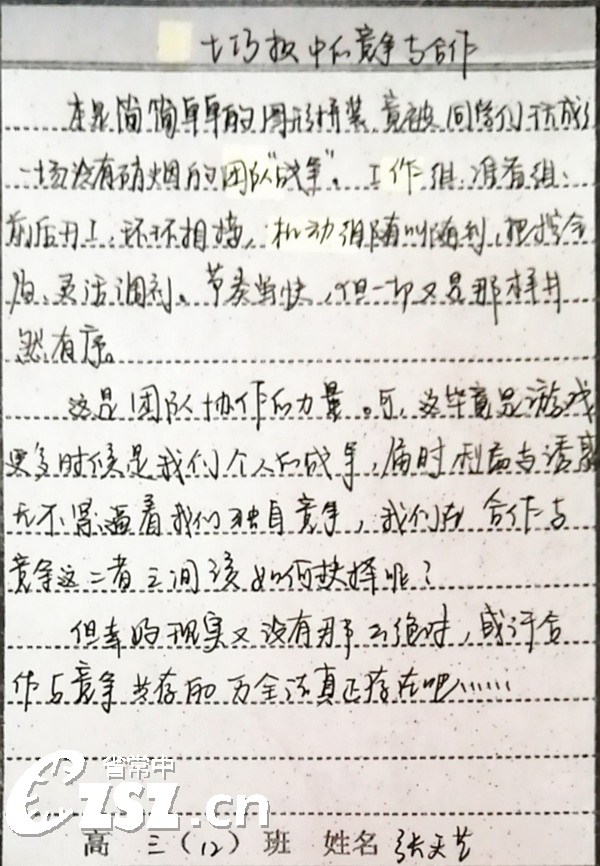 七巧板中的竞争与合作
本是简简单单的图形拼装,竟被同学们玩成了
一场没有硝烟的团队“战争”。工作组、准备组、
前后开工、环环相接,机动组随叫随到,把控全
局、灵活调剂。节奏紧快,但一切又是那样井
然有序。
这是团队协作的力量。可,这毕竟是游戏
更多时候是我们个人的战争,届时利益与诱惑
无不紧逼着我们独自竞争,我们在合作与
竞争这二者之间该如何抉择呢?
但幸好现实又没有那么绝对,或许合
作与竞争共存的万全法真正存在吧……
省常中
czsz.cn
高 三(12)班 姓名 张天